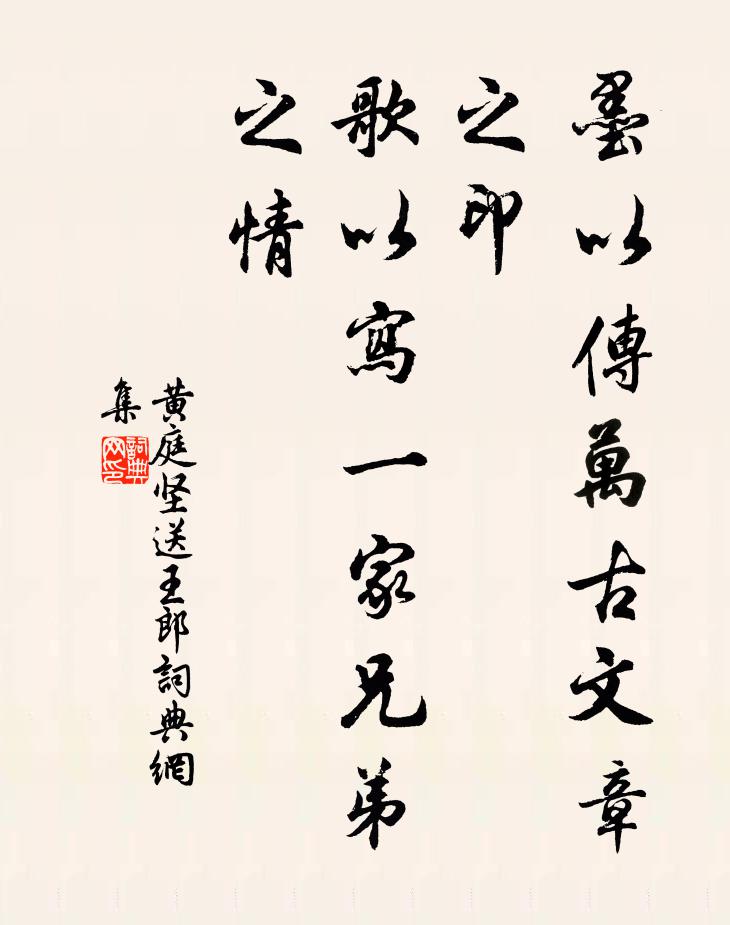 墨以傳萬古文章
之印
歌以寫一家兄弟
之情
黄庭坚送王郎詞典網
集
詞典網印